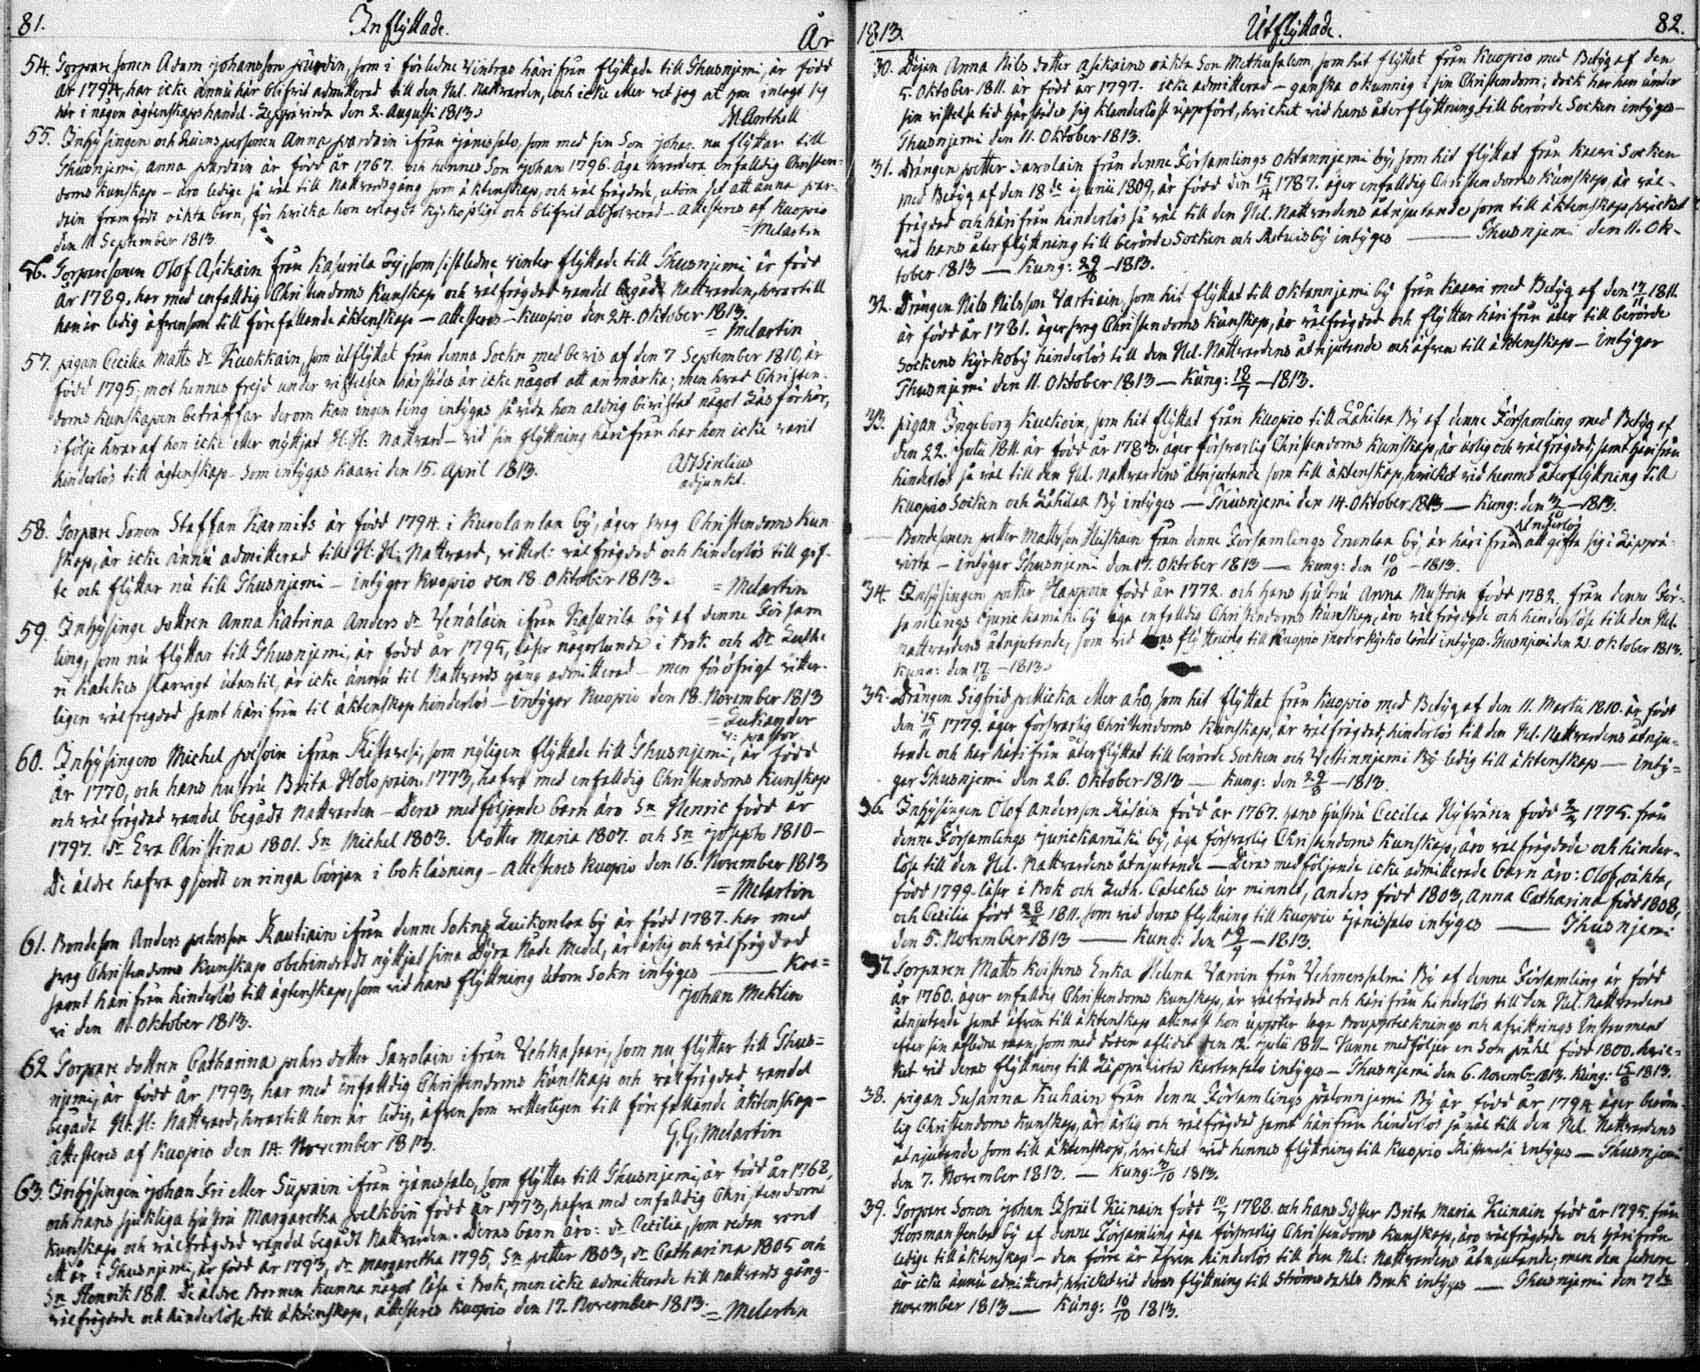 81. Inflyttade. År
54. Torpare sonen Adam Johansson Pardin, som i förledne vintras härifrån flyttade till Thusnjemi, är född
år 1794, har icke ännu här blifvit admitterad till den Hel. Nattvarden, och icke eller vet jag at han inlagt sig
här i någon ägtenskaps handel. Leppävirda den 2. Augusti 1813.
55. Inhysingen och Qvinspersonen Anna Pardain ifrån Jänissalo, som med sin Son Johan nu flyttar till
Thusnjemi, Anna Pardain är född år 1767. och hennes Son Johan 1796. äga hvardera enfalldig Christen-
doms kunskap – äro ledige så väl till Nattvardsgång som äktenskap, och väl frägdade, utom det att Anna Par-
dain framfödt oäkta barn, för hvilka hon erlagdt kyrkopligt och blifvit absolverad – Attesteras af Kuopio
den 11 September 1813. = Melartin
56. Torparesonen Olof Asikain från Kasurila by, som sistledne vinter flyttade till Thusnjemi är född
år 1789. har med enfalldig Christendoms Kunskap och välfrägdad vandel begådt Nattvarden, hvartill
han är ledig äfvensom till förefallande äktenskap – attesteras – Kuopio den 24. Oktober 1813.
= Melartin
57. Pigan Cecilia Matts dr Kuokkain, som utflyttat från denna Sockn med bevis af den 7 September 1810, är
född 1795; mot hennes frejd under vistelsen härstädes är icke något att anmärka; men hvad Christen-
doms kunskapen beträffar derom kan ingenting intygas så vida hon aldrig bivistat något Läsförhör,
i följe hvaraf hon icke eller nyttjat H: H: Nattvard – vid sin flyttning härifrån har hon icke varit
hinderlös till ägtenskap. Som intygas Kaavi den 15. April 1813.
adjunkt.
58. Torpare Sonen Staffan Karmits är född 1794. i Kurolanlax by, äger svag Christendoms Kun
skap, är icke ännu admitterad till H: H: Nattvard, vitterl: välfrägdad och hinderlös till gif-
te och flyttar nu till Thusnjemi – intygar Kuopio den 18 Oktober 1813.
= Melartin
59. Inhysinge dottren Anna Katrina Anders dr Venäläin ifrån Kasurila by af denne Försam
ling, som nu flyttar till Thusnjemi, är född år 1795, läser någorlunda i Bok och Dr Luthe
ri katekes utantil, är icke ännu til Nattvards gång admitterad – men föröfrigt vitter-
ligen välfregdad samt härifrån til äktenskap hinderlös – intygar Kuopio den 18. November 1813
= Lukander
v: pastor
60. Inhysingen Michel ifrån som nyligen flyttade till Thusnjemi, är född
år 1770, och hans hustru Brita Holopain 1773, hafva med enfalldig Christendoms kunskap
och välfrägdad vandel begådt Nattvarden – Deras medföljande barn äro Sn Henric född år
1797. Dr Eva Christina 1801. Sn Michel 1803. Dotter Maria 1807. och Sn Joseph 1810 –
De äldre hafva gjordt en ringa början i bokläsning – Attesteras Kuopio den 16. November 1813
= Melartin
61. Bondeson Anders Pehrsson Rautiain ifrån denne Sokns Luikonlax by är född 1787. har med
svag Christendoms Kunskap obehindradt nyttjat sina Dyra Nåde Medel, är ärlig och välfrägdad
samt härifrån hinderlös till ägtenskap, som vid hans flyttning utom Sokn intyges – Kaa=
vi den 11. Oktober 1813. Johan Meklin
62 Torpare dottren Catharina Pehrs dotter Savolain ifrån Vehkasaari, som nu flyttar till Thus=
njemi, är född år 1793, har med enfalldig Christendoms kunskap och välfrägdad vandel
begådt H: H: Nattvard, hvartill hon är ledig, äfven som vitterligen till förefallande äktenskap –
attesteras af Kuopio den 14. November 1813. G. G. Melartin
63. Inhysingen Johan Fri eller Siipain ifrån Jänissalo, som flyttar till Thusnjemi är född år 1768,
och hans sjukliga hustru Margaretha född år 1773, hafva med enfalldig Christendoms
kunskap och välfrägdad vandel begådt Nattvarden. Deras barn äro: Dr Cecilia, som redan varit
ett år i Thusnjemi, är född år 1793, Dr Margaretha 1795, Sn Petter 1803, Dr Catharina 1805 och
Sn Henrik 1811. De äldre Barnen kunna något läsa i Bok, men icke admitterade till nattvards gång –
välfrägdade och hinderlöse till äktenskap, attesteras Kuopio den 17. November 1813. = Melartin
1813. Utflyttade. 82.
30. Pojen Anna Nils dotter Asikains oäkta Son Methusalem, som hit flyttat från Kuopio med Betyg af den
5. Oktober 1811. är född år 1797. icke admitterad – ganska okunnig i sin Christendom; dock har han under
sin vistelse tid härstädes sig klanderlöst uppfört, hvilket vid hans återflyttning till berörde Socken intyges –
Thusnjemi den 11. Oktober 1813.
31. Drängen Petter Savolain från denne Församlings Oktannjemi by, som hit flyttat från Kaavi Socken
med Betyg af den 18de Junii 1809, är född den 15/4 1787. äger enfalldig Christendoms Kunskap, är väl-
frägdad och härifrån hinderlös så väl till den Hel. Nattvardens åtnjutande, som till äktenskap, hvilket
vid hans återflyttning till berörde Socken och by intyges – Thusnjemi den 11. Ok-
tober 1813 – Kung: 29/8 – 1813.
32. Drängen Nils Nilsson Vartiain, som hit flyttat till Oktannjemi by från Kaavi med Betyg af den 17/11 1811.
är född år 1781. äger svag Christendoms kunskap, är välfrägdad och flyttar härifrån åter till berörde
Sockens Kyrkoby hinderlös till den Hel. Nattvardens åtnjutande och äfven till äktenskap – intygar
Thusnjemi den 11. Oktober 1813 – Kung: 18/7 – 1813.
33. Pigan Ingeborg Kuckoin, som hit flyttat från Kuopio till By af denne Församling med Betyg af
den 22. Julii 1811. är född år 1783. äger försvarlig Christendoms Kunskap, är ärlig och välfrägdad, samt härifrån
hinderlös så väl till den Hel. Nattvardens åtnjutande som till äktenskap, hvilket vid hennes återflyttning till
Kuopio Socken och By intyges – Thusnjemi den 14. Oktober 1813 – Kung: den – 1813.
Bondesonen Petter Mattsson Heiskain från denne Församlings Enonlax by, är härifrån hinderlös att gifta sig i Leppä-
virta – intygar Thusnjemi den 17. Oktober 1813 – Kung: den 10/10 – 1813.
34. Inhysingen Petter Happoin född år 1772. och hans hustru Anna Mustoin född 1782. från denne För-
samlings Juurickamäki by äga enfalldig Christendoms Kunskap, äro välfrägdade och hinderlöse till den Hel.
nattvardens åtnjutande, som vid deras flyttning till Kuopio moder kyrko Sockn intyges. Thusnjemi den 21 Oktober 1813.
Kung: den 17 – 1813.
35. Drängen Sigfrid Miicka eller Aho, som hit flyttat från Kuopio med Betyg af den 11. Martii 1810. är född
den 15/11 1779. äger försvarlig Christendoms Kunskap, är välfrägdad, hinderlös till den Hel. Nattvardens åtnju-
tande och har härifrån återflyttat till berörde Socken och By ledig till äktenskap – inty=
gar Thusnjemi den 26. Oktober 1813 – Kung: den 29/8 – 1813.
36. Inhysingen Olof Andersson Räsäin född år 1767. hans hustru Cecilia Hyfväin född 1775. från
denne Församlings Jurickamäki by, äga försvarlig Christendoms Kunskap, äro välfrägdade och hinder-
löse till den Hel. Nattvardens åtnjutande – Deras medföljande icke admitterade barn äro: Olof, oäkta,
född 1799. läser i Bok och Luth. Cateches ur minnet, Anders född 1803, Anna Catharina född 1808,
och Cecilia född 28/2 1811. som vid deras flyttning till Kuopio Jänissalo intyges – Thusnjemi
den 5. November 1813 – Kung: den – 1813.
37. Torparen Matts Kvistens Enka Helena Varoin från Vehmersalmi By af denne Församling är född
år 1760. äger enfalldig Christendoms Kunskap, är välfrägdad och härifrån hinderlös till den Hel. Nattvardens
åtnjutande samt äfven till äktenskap allenast hon uppviser laga Bouppteckning och afvittrings Instrument
efter sin aflidne man, som med döden aflidit den 12. Julii 1811 – Henne medföljer en Son Påhl född 1800. hvil-
ket vid deras flyttning till Leppävirta intyges – Thusnjemi den 6. Novembr 1813. Kung: 15/8 1813.
38. Pigan Susanna Ruhain från denne Församlings By är född år 1794. äger beröm-
lig Christendoms Kunskap, är ärlig och välfrägdad samt härifrån hinderlös så väl till den Hel. Nattvardens
åtnjutande som till äktenskap, hvilket vid hennes flyttning till Kuopio intyges – Thusnjemi
den 7. November 1813. – Kung: 3/10 1813.
39. Torpare Sonen Johan Isräel Kiinain född 1788. och hans Syster Brita Maria Kiinain född år 1795. från
Horsmanlax by af denne Församling äga försvarlig Christendoms Kunskap, äro välfrägdade och härifrån
ledige till äktenskap – den förre är äfven hinderlös till den Hel: Nattvardens åtnjutande, men den sednare
är icke ännu admitterad, hvilket vid deras flyttning till Strömsdahls Bruk intyges – Thusnjemi den 7de
November 1813 – Kung: 10/10 1813.